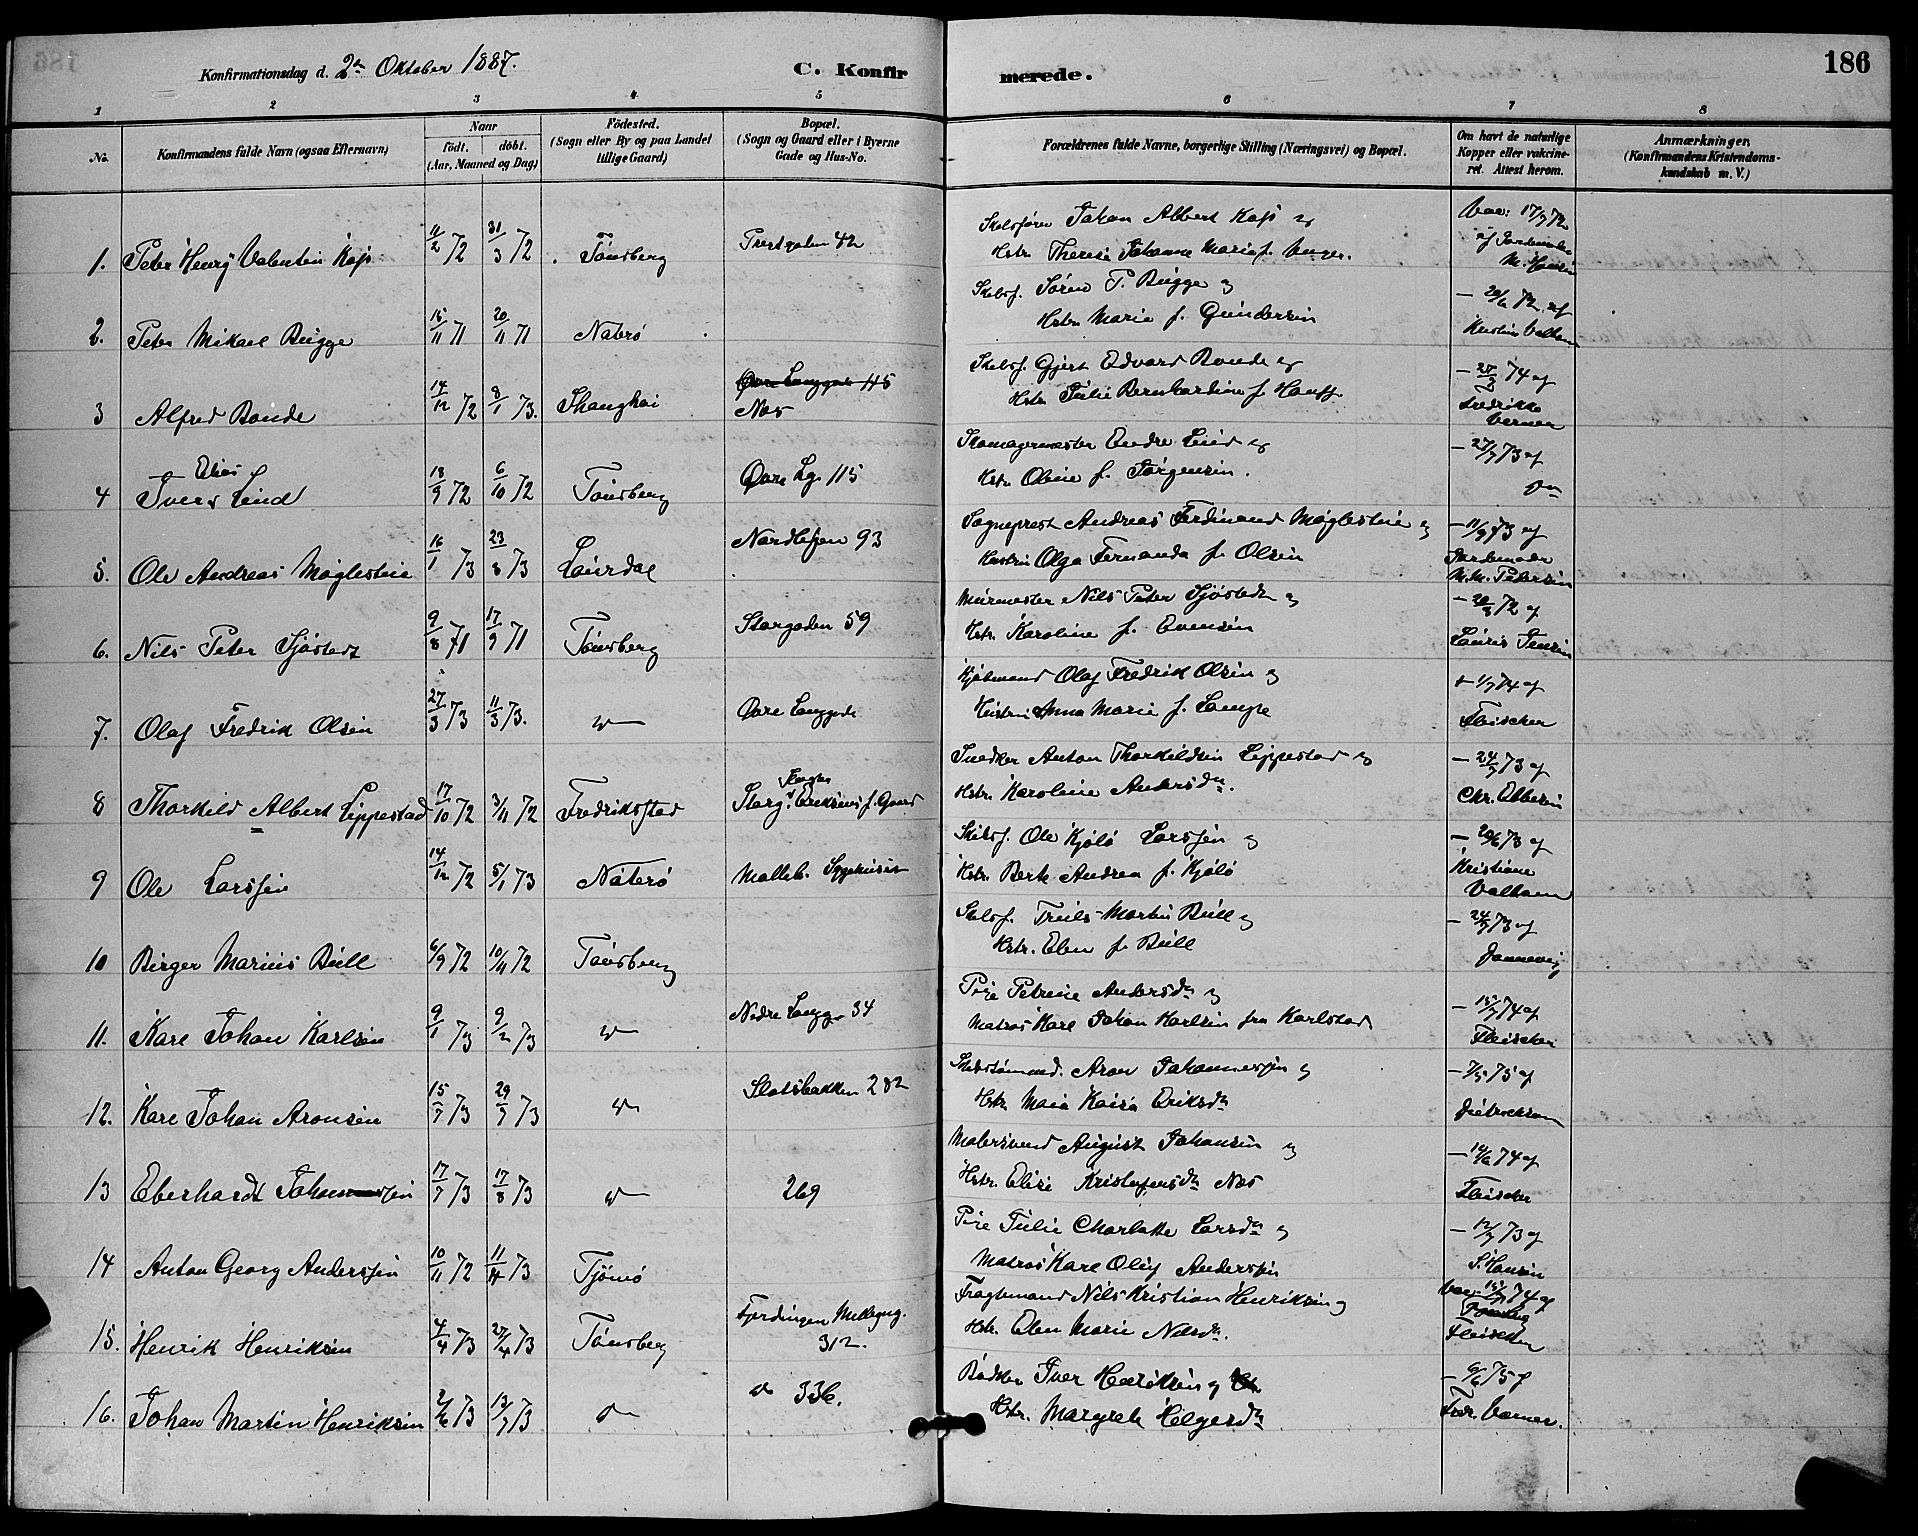 Konfirmationsdag d. 2den Oktober 1887. C. Konfirmerede. 186
1 2 3 4 5 6 7 8
No. Konfirmandens fulde Navn (ogsaa Efternavn) Naar födt. döbt. (Aar, Maaned og Dag) Födested. (Sogn eller By og paa Landet tillige Gaard) Bopæl. (Sogn og Gaard eller i Byerne Gade og Hus-No. Forældrenes fulde Navne, borgerlige Stilling (Næringsvei) og Bopæl. Om havt de naturlige Kopper eller vaccineret. Attest herom. Anmærkninger. (Konfirmandens Kristendomskundskab m. V.)
1. Peter Henry Valentin 11/2 72 31/3 72 Tönsberg 42 Johan Albert og
Hstr. Therese Johanne Marie f. Unger. Vac: 17/7 72 af M. Hansen
2. Peter Mikael Bugge 15/11 71 26/11 71 Nøterö Skibsf. Sören P. Bugge og
Hstr. Marie f. Gundersen — 72 af
3 Alfred Bonde 14/12 72 8/1 73. Shanghai Øvre Langgade 115
Næs Skibsf. Gjert Edvard Bonde og
Hstr. Julie Bernhardine f. — 74 af Fredrikke Verner
4 Elias
Ivers Lind 18/9 72 6/10 72 Tönsberg Øvre Lg. 115 Skomagermester Endre Lind og
Hstr. Oline f. Jörgensen. — 27/7 73 af
5. Ole Andreas Möglestue 16/1 73 23/8 73 Laurdal Nordbyen 93 Sogneprest Andreas Ferdinand Möglestue og
Hustru Olga Fernanda f. Olsen — 11/9 73 af Jordemoder M.M. Pedersen
6. Nils Peter Sjöstedt 9/8 71 17/9 71 Tönsberg Storgaden 59 Murmester Nils Peter Sjöstedt og
Hstr. Karoline f. Evensen — 72 af Jensen
7. Olaf Fredrik Olsen 27/3 73 11/3 73. Øvre Langgade Kjöbmand Olaf Fredrik Olsen og
Hustru Anna Marie f. Lampe 1/7 74 af Fleischer
8 Thorkild Albert Lippestad 17/10 72 3/11 72 Fredrikstad Storg. f. Gaard Snedker Anton Thorkildsen Lippestad og
Hstr. Karoline Andersdn. — 24/7 73 af Chr. Ebbesen
9 Ole Larssen 14/12 72 5/1 73 Nöterö Mölleb. Sygehuset Skibsf. Ole Kjölö Larssen og
Hstr. Berte Andrea f. Kjölö — 20/6 73 af Kristiane
10 Birger Marius Bull 6/9 72 10/11 72 Tönsberg Skibsf. Truls Martin Bull og
Hstr. Elen f. Bull — 24/7 73 af Dannevig
11. Karl Johan Karlsen 9/1 73 9/2 73 Nedre Langg. 34 Pige Petrine Andersdn og
Matros Karl Johan Karlsen fra Karlstad — 15/7 74 af Fleischer
12. Karl Johan Aronsen 15/7 73 29/7 73 Slotsbakken 282 Skibstömmd. Aron Johannessen og
Hstr. Maia Kaisa Eriksdn — 7/5 75 af
13 Eberhardt Johannessen 17/7 73 17/8 73 269 Malersvend August Johansen og
Hstr. Elise Kristofersdn Næs — 14/6 74 af Fleischer
14 Anton Georg Anderssen 10/11 72 11/4 73 Tjömö Pige Julie Charlotte Larsdn og
Matros Karl Oluf Anderssen — 12/7 73 af S. Hansen
15. Henrik Henriksen 4/4 73 27/4 73 Tönsberg Fjerdingen
312. Fragtemand Nils Kristian Henriksen og
Hstr. Elen Marie Nilsdn. Vac. 15/7 74 af Fleischer
16. Johan Martin Henriksen 2/6 73 13/7 73 336. Bödker Iver Henriksen og
Hstr. Margrete Helgesdn — 6/6 75 af Fredr. Verner.